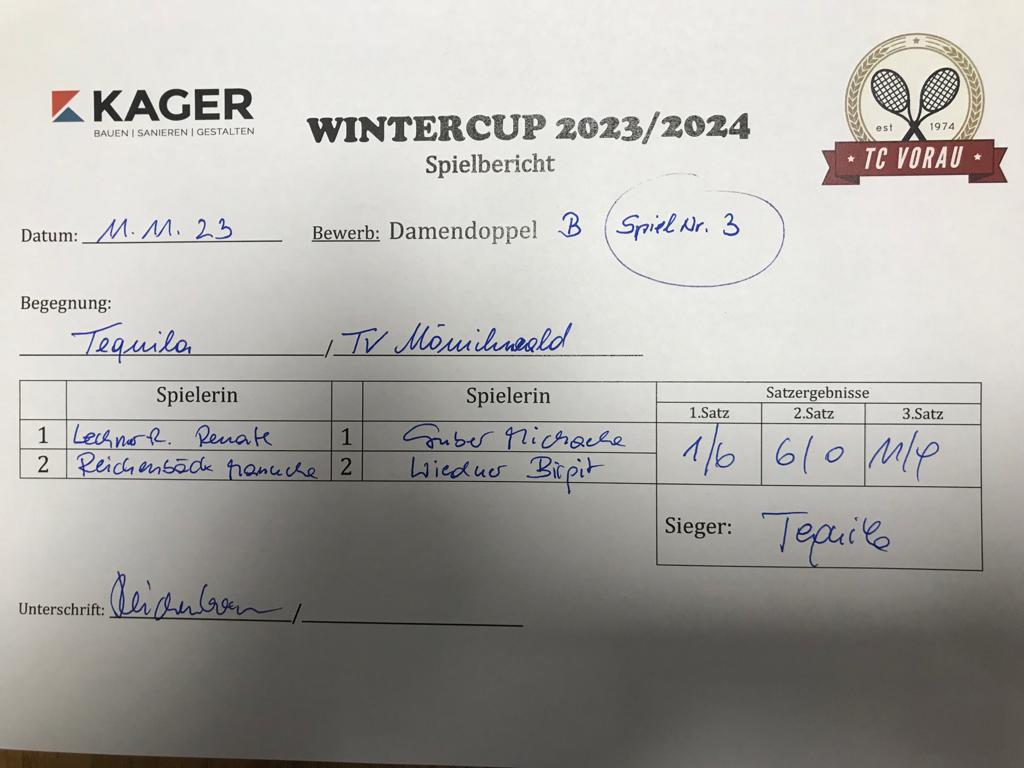 KAGER
BAUEN | SANIEREN | GESTALTEN
WINTERCUP 2023/2024
Spielbericht
est 1974
TC VORAU
Datum: 11.11.23 Bewerb: Damendoppel B Spiel Nr. 3
Begegnung:
Tequila / TV Mönichwald
Spielerin Spielerin Satzergebnisse
1.Satz 2.Satz 3.Satz
1 Renate 1 Michaela 1/6 6/0
2 2 Wiedner Birgit
Sieger: Tequila
Unterschrift: /